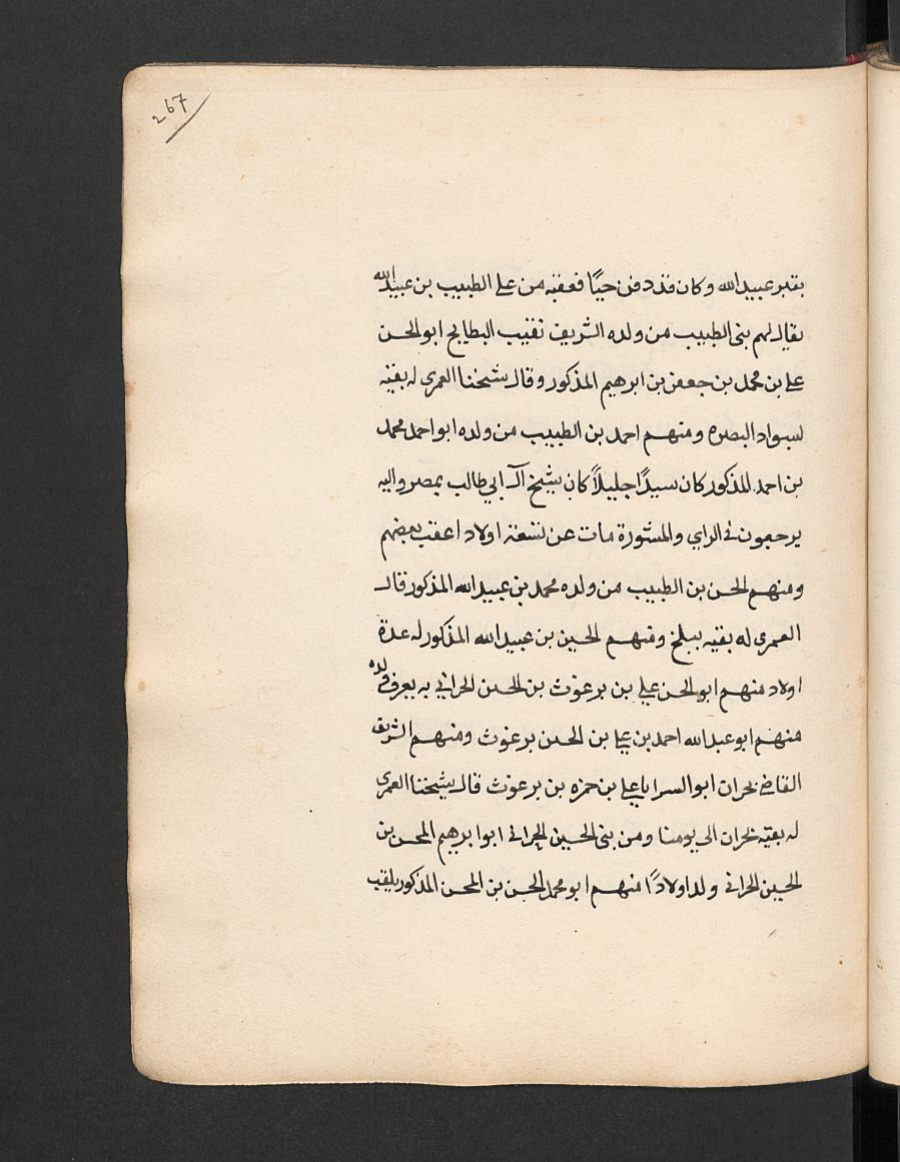 267
بقبر عبيدالله وكان قد دفن حيًا فعقبه من على الطبيب بن عبيدالله
يقال لهم بنى الطبيب من ولده الشريف نقيب البطايح ابو الحسن
على بن محمد بن جعفر بن ابرهيم المذكور وقال شيخنا العمرى له بقيه
لسواد البصره ومنهم احمد بن الطبيب من ولده ابو احمد محمد
بن احمد المذكور كان سيدًا جليلاً كان شيخ آل ابي طالب بمصر واليه
يرجعون فى الراي والمشورة مات عن تسعة اولاد اعقب بعضهم
ومنهم الحسن بن الطبيب من ولده محمد بن عبيدالله المذكور قال
العمرى له بقيه ببلخ ومنهم الحسين بن عبيدالله المذكور له عدة
اولاد منهم ابو الحسن علي بن برغوث بن الحسن الحرانى به يعرف ولده
منهم ابو عبدالله احمد بن على بن الحسن برغوث ومنهم الشريف
القاضى بحران ابو السرايا على بن حمزه بن برغوث قال شيخنا العمرى
له بقيه بحران الى يومنا ومن بنى الحسين الحرانى ابو ابرهيم المحسن بن
الحسين الحرانى ولد اولادًا منهم ابو محمد الحسن بن المحسن المذكور يلقب